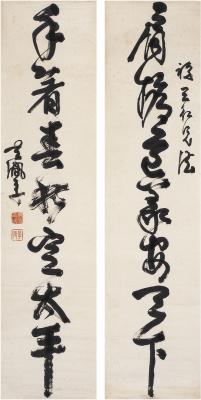 仁兄法
肩擔道義安天下
手著春秋定太平
吳佩孚